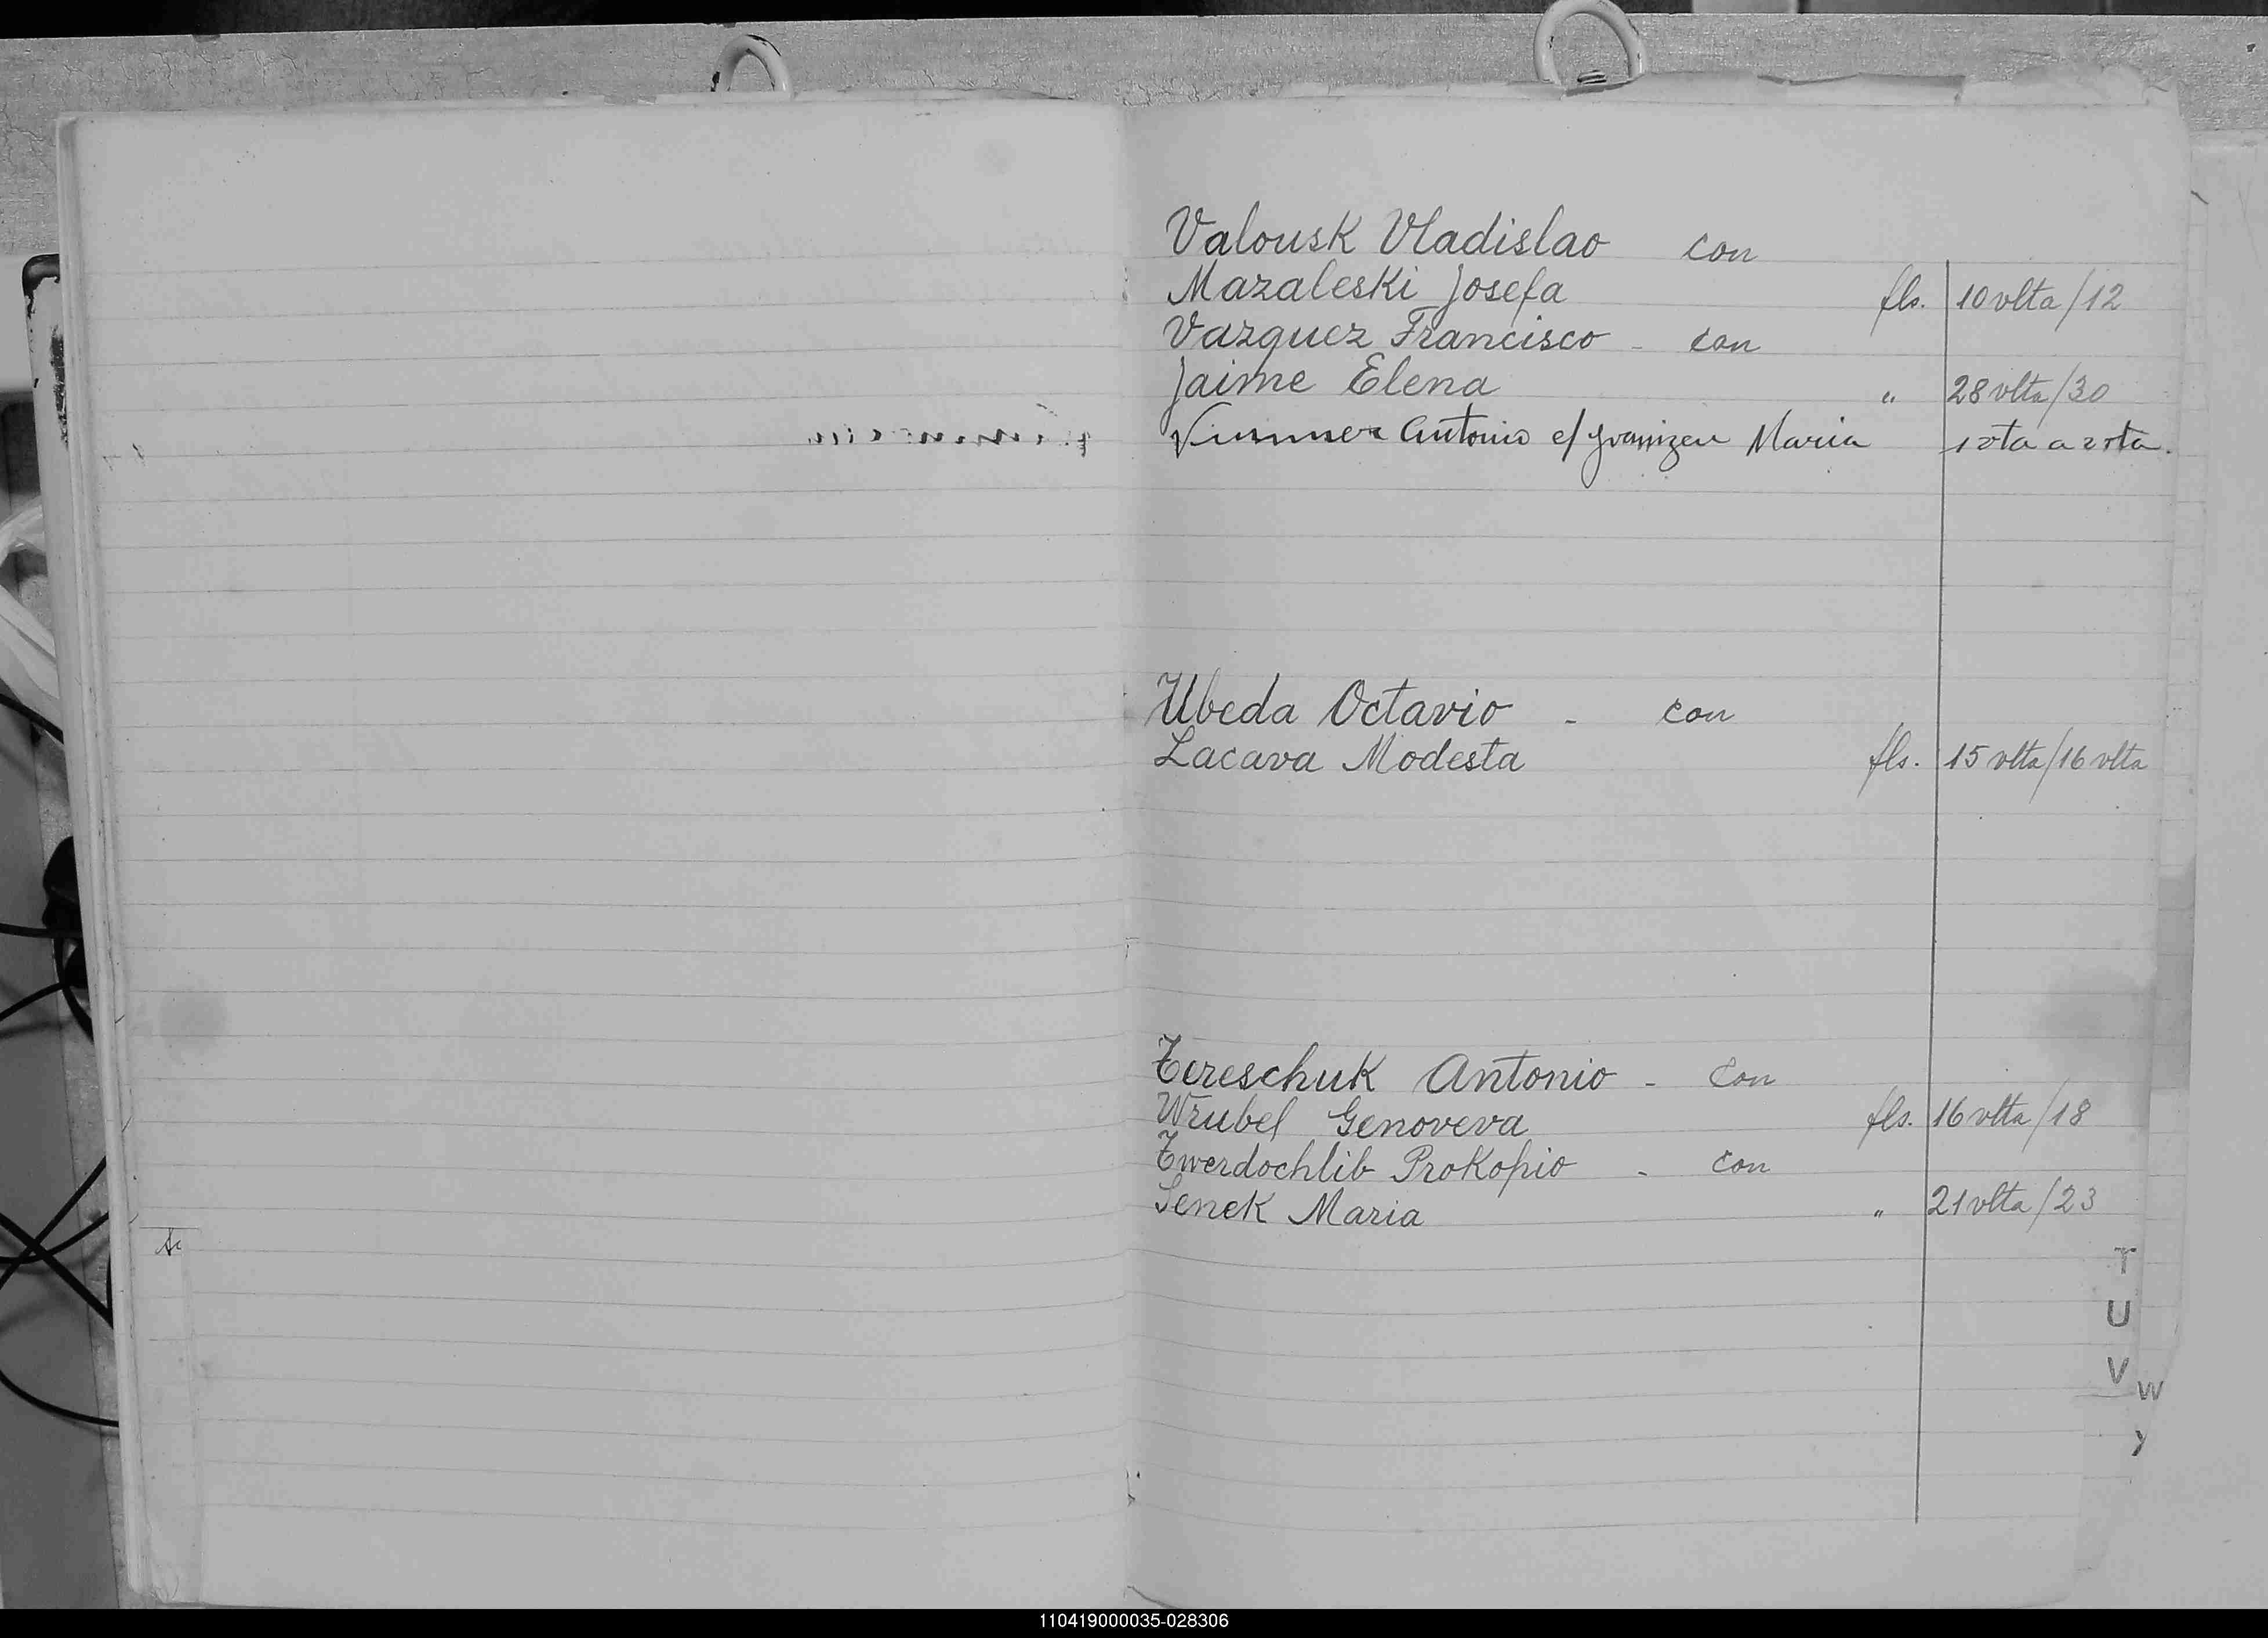 Valousk Vladislao con
Mazaleski Josefa fls. 10 vlta/12
Vazquez Francisco - con
Jaime Elena " 28 vlta/30
Antonio c/ Maria 1 vta a 2 vta.
Ubeda Octavio - con
Lacava Modesta fls. 15 vlta/16 vlta
Tereschuk Antonio - con
Wrubel Genoveva fls. 16 vlta/18
Twerdochlib Prokopio - con
Senek Maria " 21 vlta/23
T
U
V
W
Y
110419000035-028306